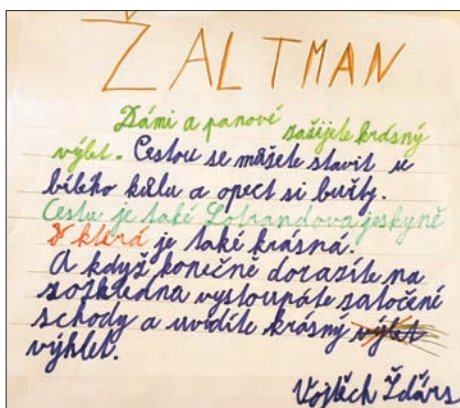 ŽALTMAN
Dámi a panové zažijete krásný
výlet. Cestou se můžete stavit u
bílého kůlu a opect si buřty.
Cestu je také Lotrandova jeskyně
která je také krásná.
A když konečně dorazíte na
rozhledna vystoupáte zatočení
schody a uvidíte krásný výlet
výhlet.
Vojtěch Žďárs